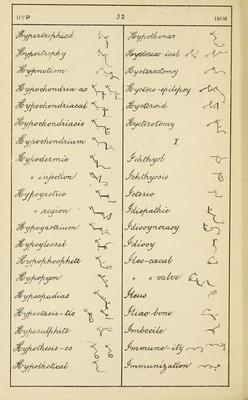 HYP 32 IMM
Hypertrophied
Hypertrophy
Hypnotism
Hypochondria-ac
Hypochondriacal
Hypochondriasis
Hypochondrium
Hypodermic
" injection
Hypogastric
" region
Hypogastrium
Hypoglossal
Hypophosphite
Hypopyon
Hypospadias
Hypostasis-tic
Hyposulphite
Hypothesis-es
Hypothetical
Hypothenar
Hysteria-ical
Hysterectomy
Hystero-epilepsy
Hysteroid
Hysterotomy
I
Ichthyol
Ichthyosis
Icteric
Idiopathic
Idiosyncrasy
Idiocy
Ileo-cæcal
" " valve
Ileus
Iliac-bone
Imbecile
Immune-ity
Immunization